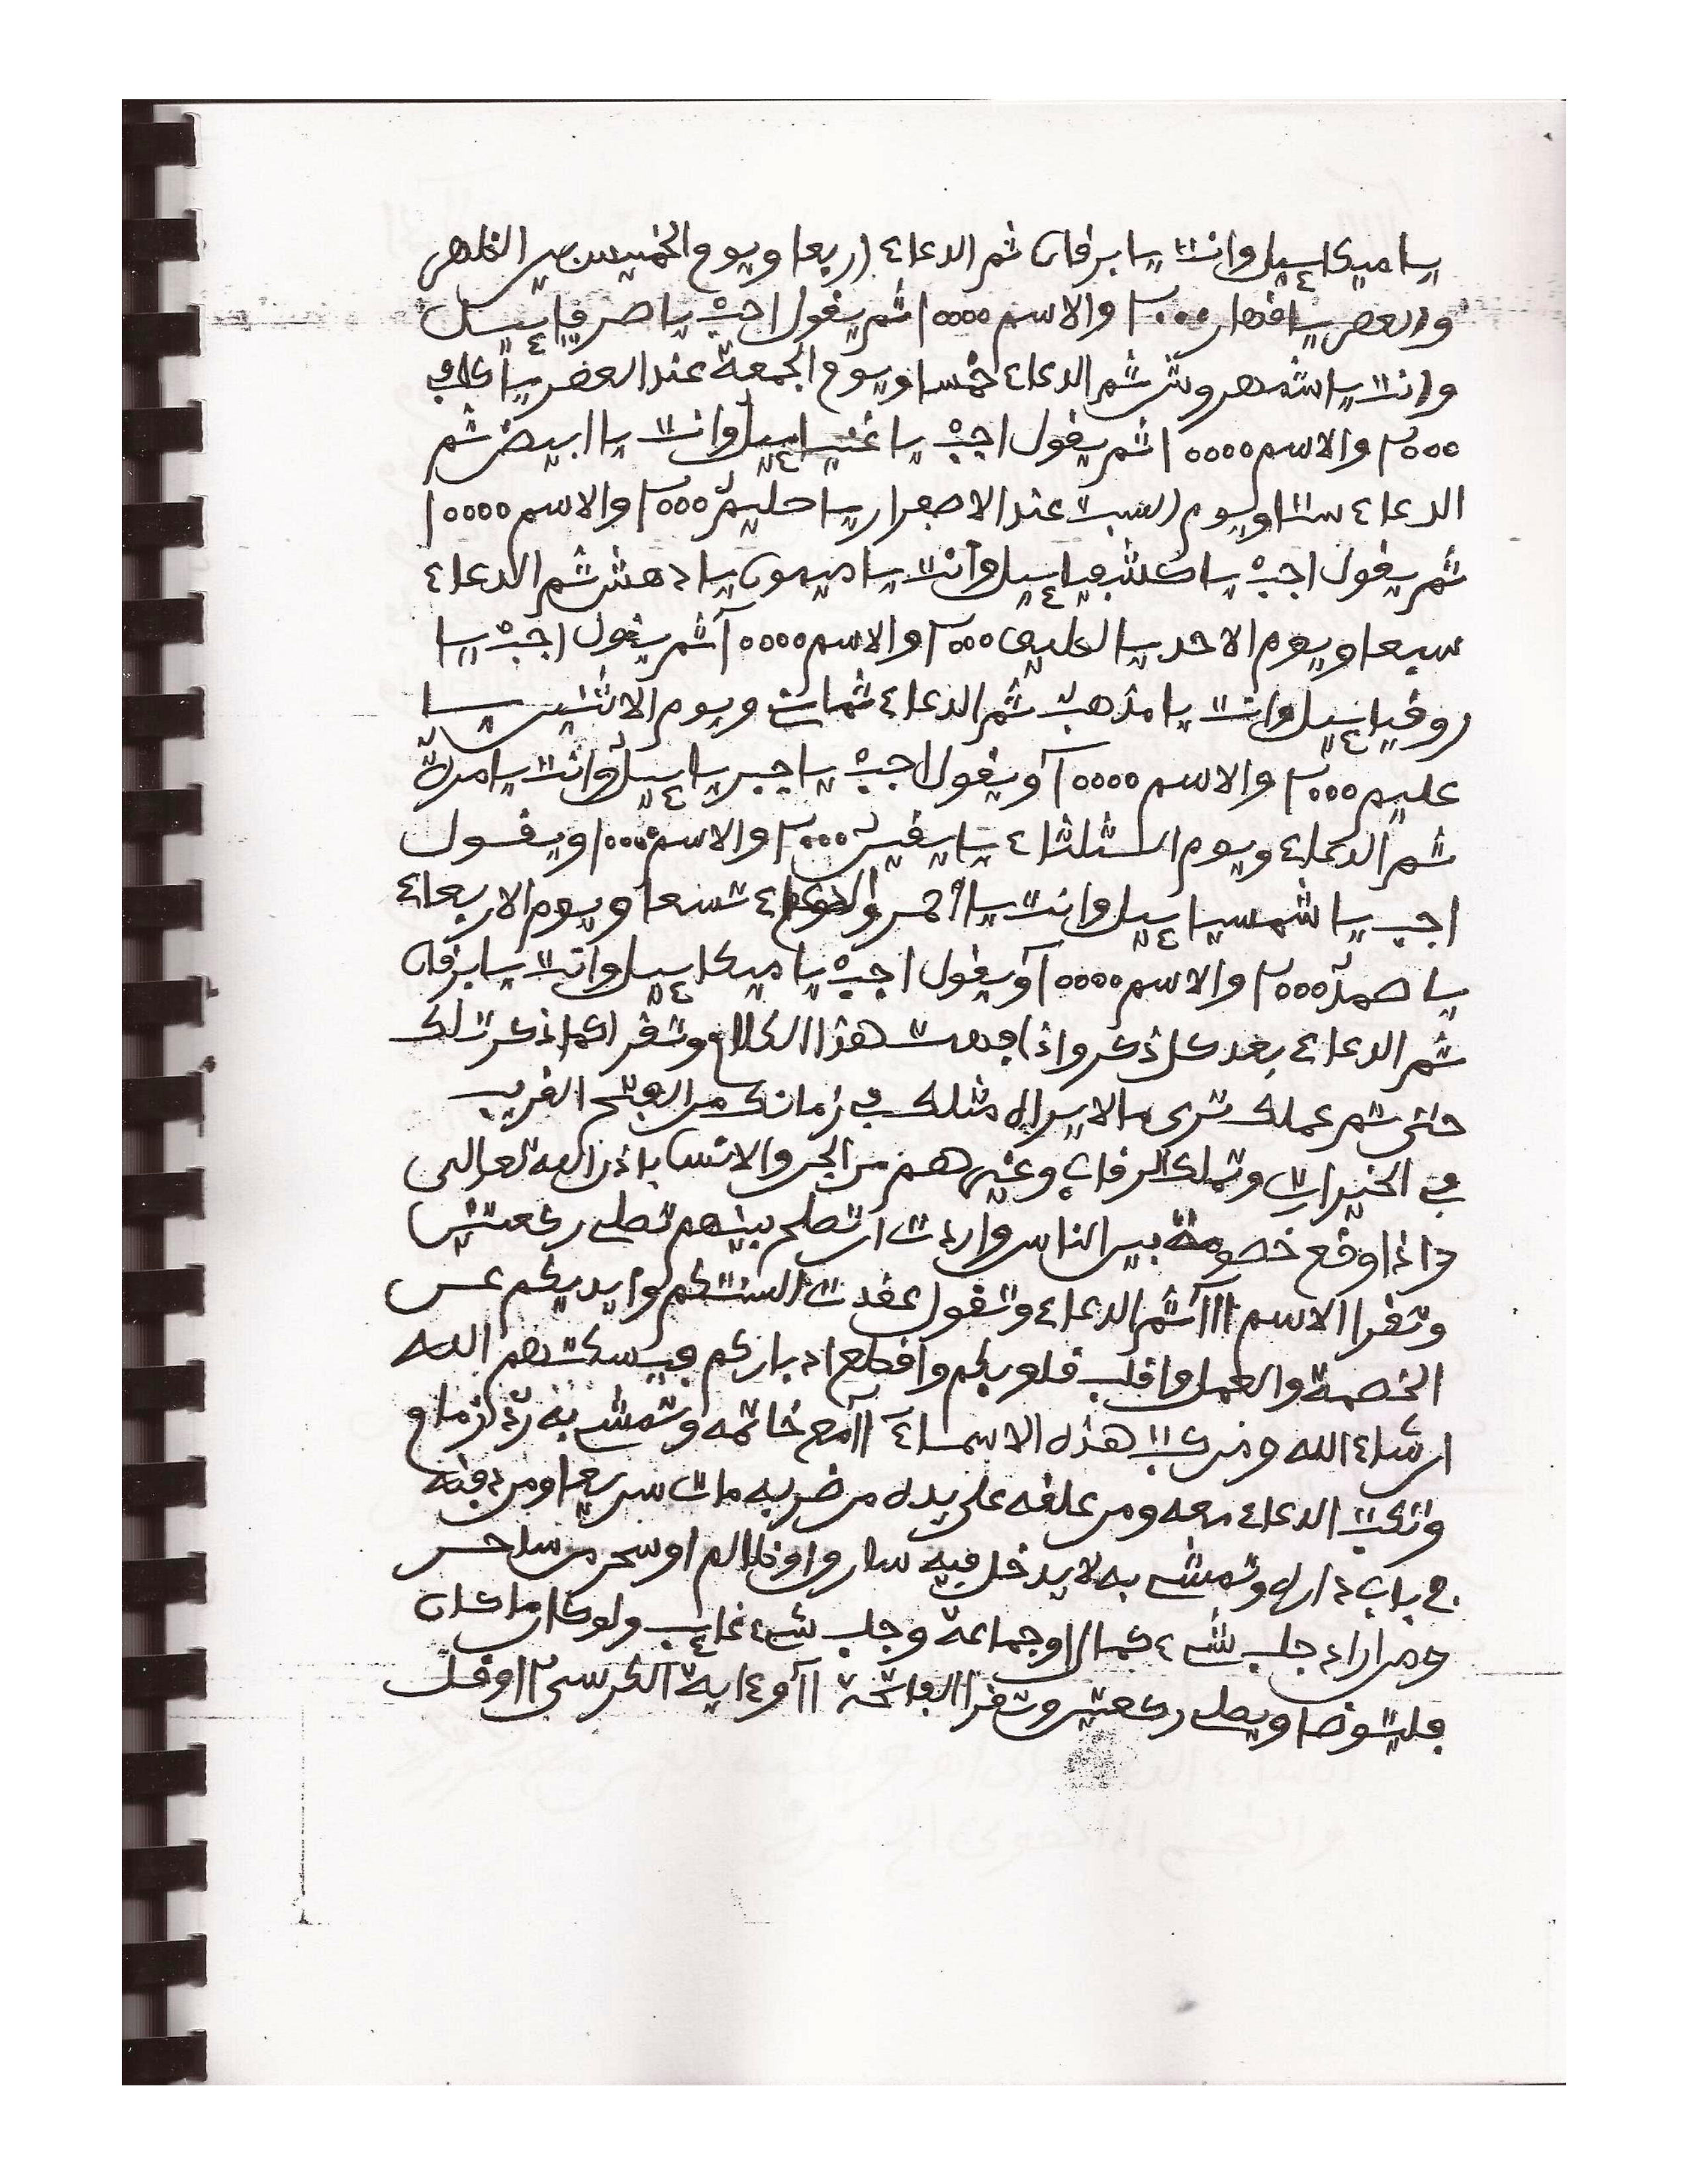 يا ميكاءيل وانت يا برقان ثم الدعاء اربعا ويوم الخميس بين الظهر
والعصر يا قهار ٢٠٠٠ والاسم ١٠٠٠٠ ثم يقول اجب يا صرفياءيل
وانت يا شمهروش ثم الدعاء خمسا ويوم الجمعة عند العصر يا كافي
٢٠٠٠ والاسم ١٠٠٠٠ ثم يقول اجب يا عنياءيل وانت يا ابيض ثم
الدعاء ستا ويوم السبت عند الاصفرار يا حليم ٢٠٠٠ والاسم ١٠٠٠٠
ثم يقول اجب يا كشفياءيل وانت يا ميمون يا دهش ثم الدعاء
سبعا ويوم الاحد يا لطيف ٢٠٠٠ والاسم ١٠٠٠٠ ثم يقول اجب يا
روفياءيل وانت يا مذهب ثم الدعاء ثمان ويوم الاثنين يا
عليم ٢٠٠٠ والاسم ١٠٠٠٠ ويقول اجب يا جبرياءيل وانت يا مرة
ثم الدعاء ويوم الثلثاء يا ٢٠٠٠ والاسم ١٠٠٠ ويقول
اجب يا شمسياءيل وانت يا احمر والدعاء تسعا ويوم الاربعاء
يا صمد ٢٠٠٠ والاسم ١٠٠٠٠ ويقول اجب يا ميكاءيل وانت يا برقان
ثم الدعاء بعد كل ذكر واذا فهمت هذا الكلام وتقرا كما ذكرت لك
حتى تم عملك ترى ما لا يراه مثلك في زمانك من الفتح القريب
في الخيرات وتملك الرقاب وغيرهم من الجن والانس باذن الله تعالى
واذا وقع خصومة بين الناس واردت ان تصلح بينهم تصلي ركعتين
وتقرا الاسم ١١١ ثم الدعاء وتقول عقدت السنتكم وايديكم عن
الخصمة والعمل واقلب قلوبكم واقطع ادباركم فيسكتهم الله
ان شاء الله ومن كتب هذه الاسماء ١١ مع خاتمه وتمشي به
وتكتب الدعاء معه ومن علقه على يده من ضربه مات سريعا ومن دفنه
في باب داره وتمشي به لا يدخل فيه سارق او ظالم او سحر من ساحر
ومن اراد جلب شيء كمال او جماعة وجلب شيء غايب ولو كان ما كان
فليتوضا ويصلي ركعتين وتقرا الفاتحة ١١ واية الكرسي ١١ وقل